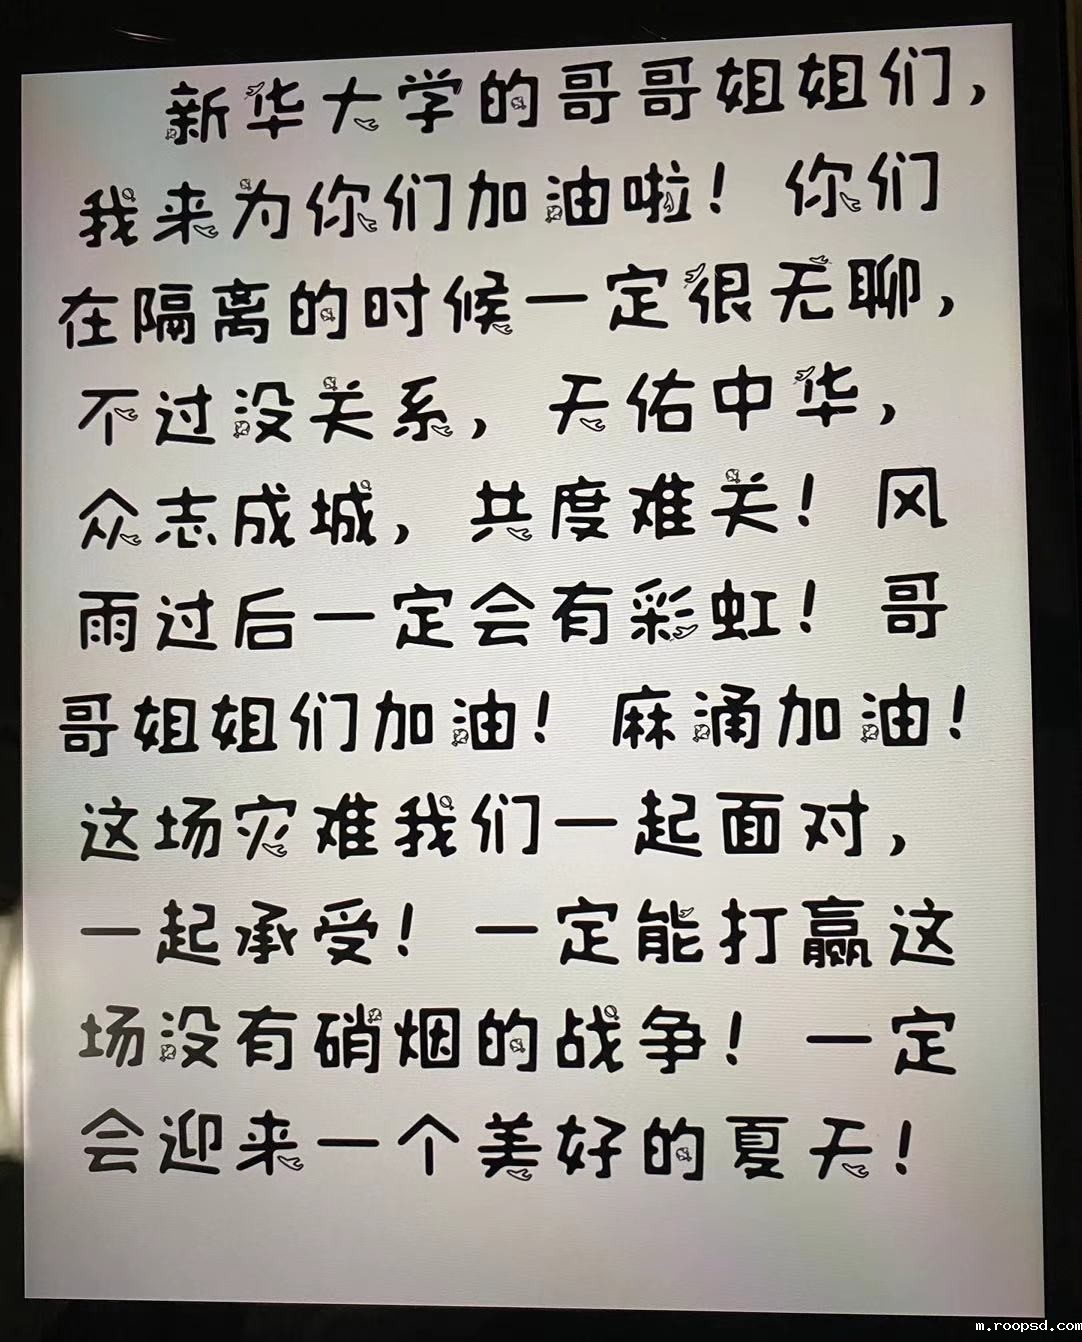 新华大学的哥哥姐姐们，
我来为你们加油啦！你们
在隔离的时候一定很无聊，
不过没关系，天佑中华，
众志成城，共度难关！风
雨过后一定会有彩虹！哥
哥姐姐们加油！麻涌加油！
这场灾难我们一起面对，
一起承受！一定能打赢这
场没有硝烟的战争！一定
会迎来一个美好的夏天！
m.roopsd.com